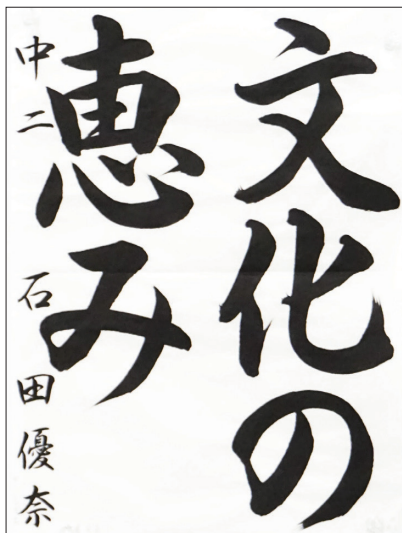 文化の
恵み
中二 石田優奈